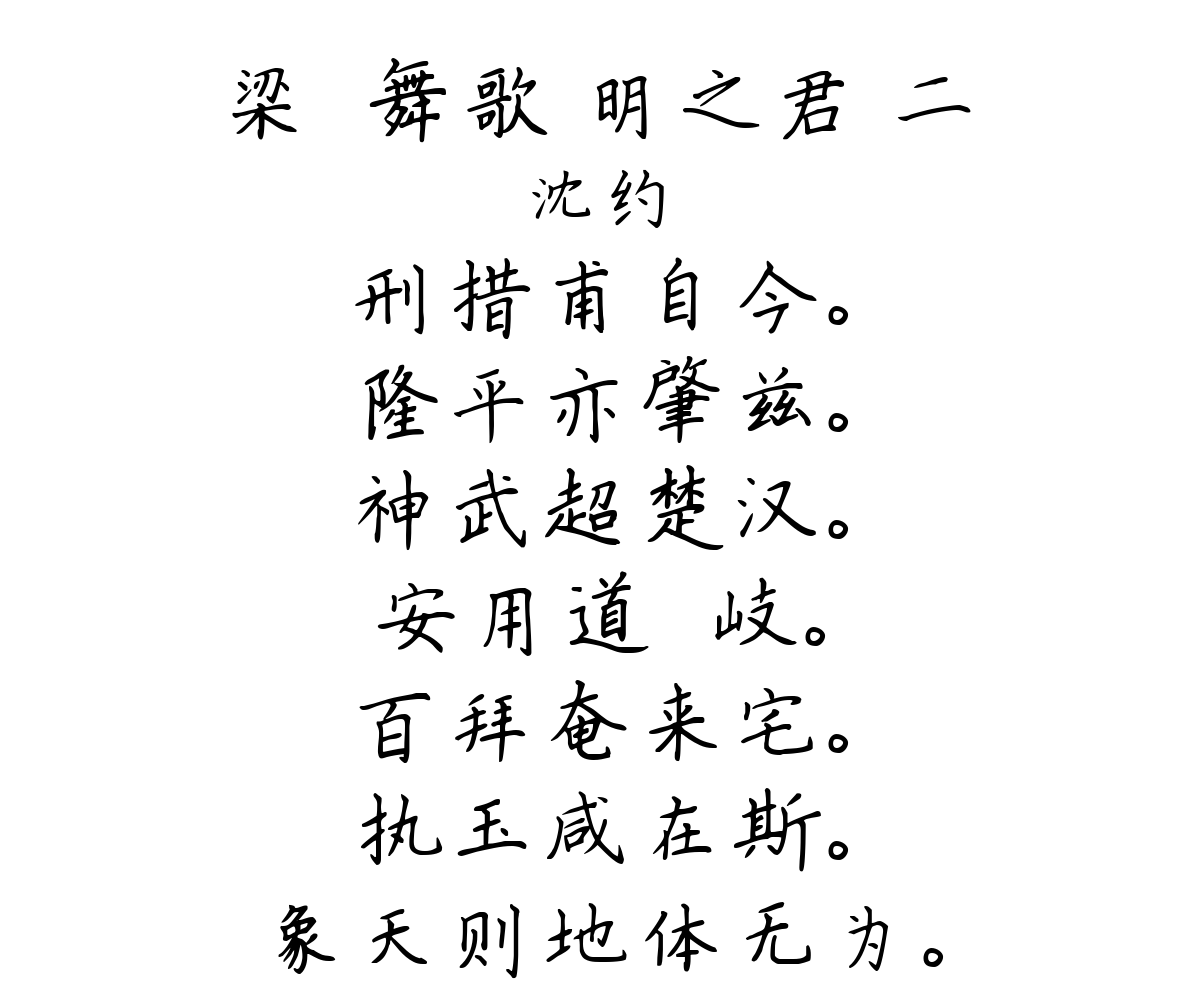 梁 舞歌 明之君 二
沈约
刑措甫自今。
隆平亦肇兹。
神武超楚汉。
安用道 岐。
百拜奄来宅。
执玉咸在斯。
象天则地体无为。